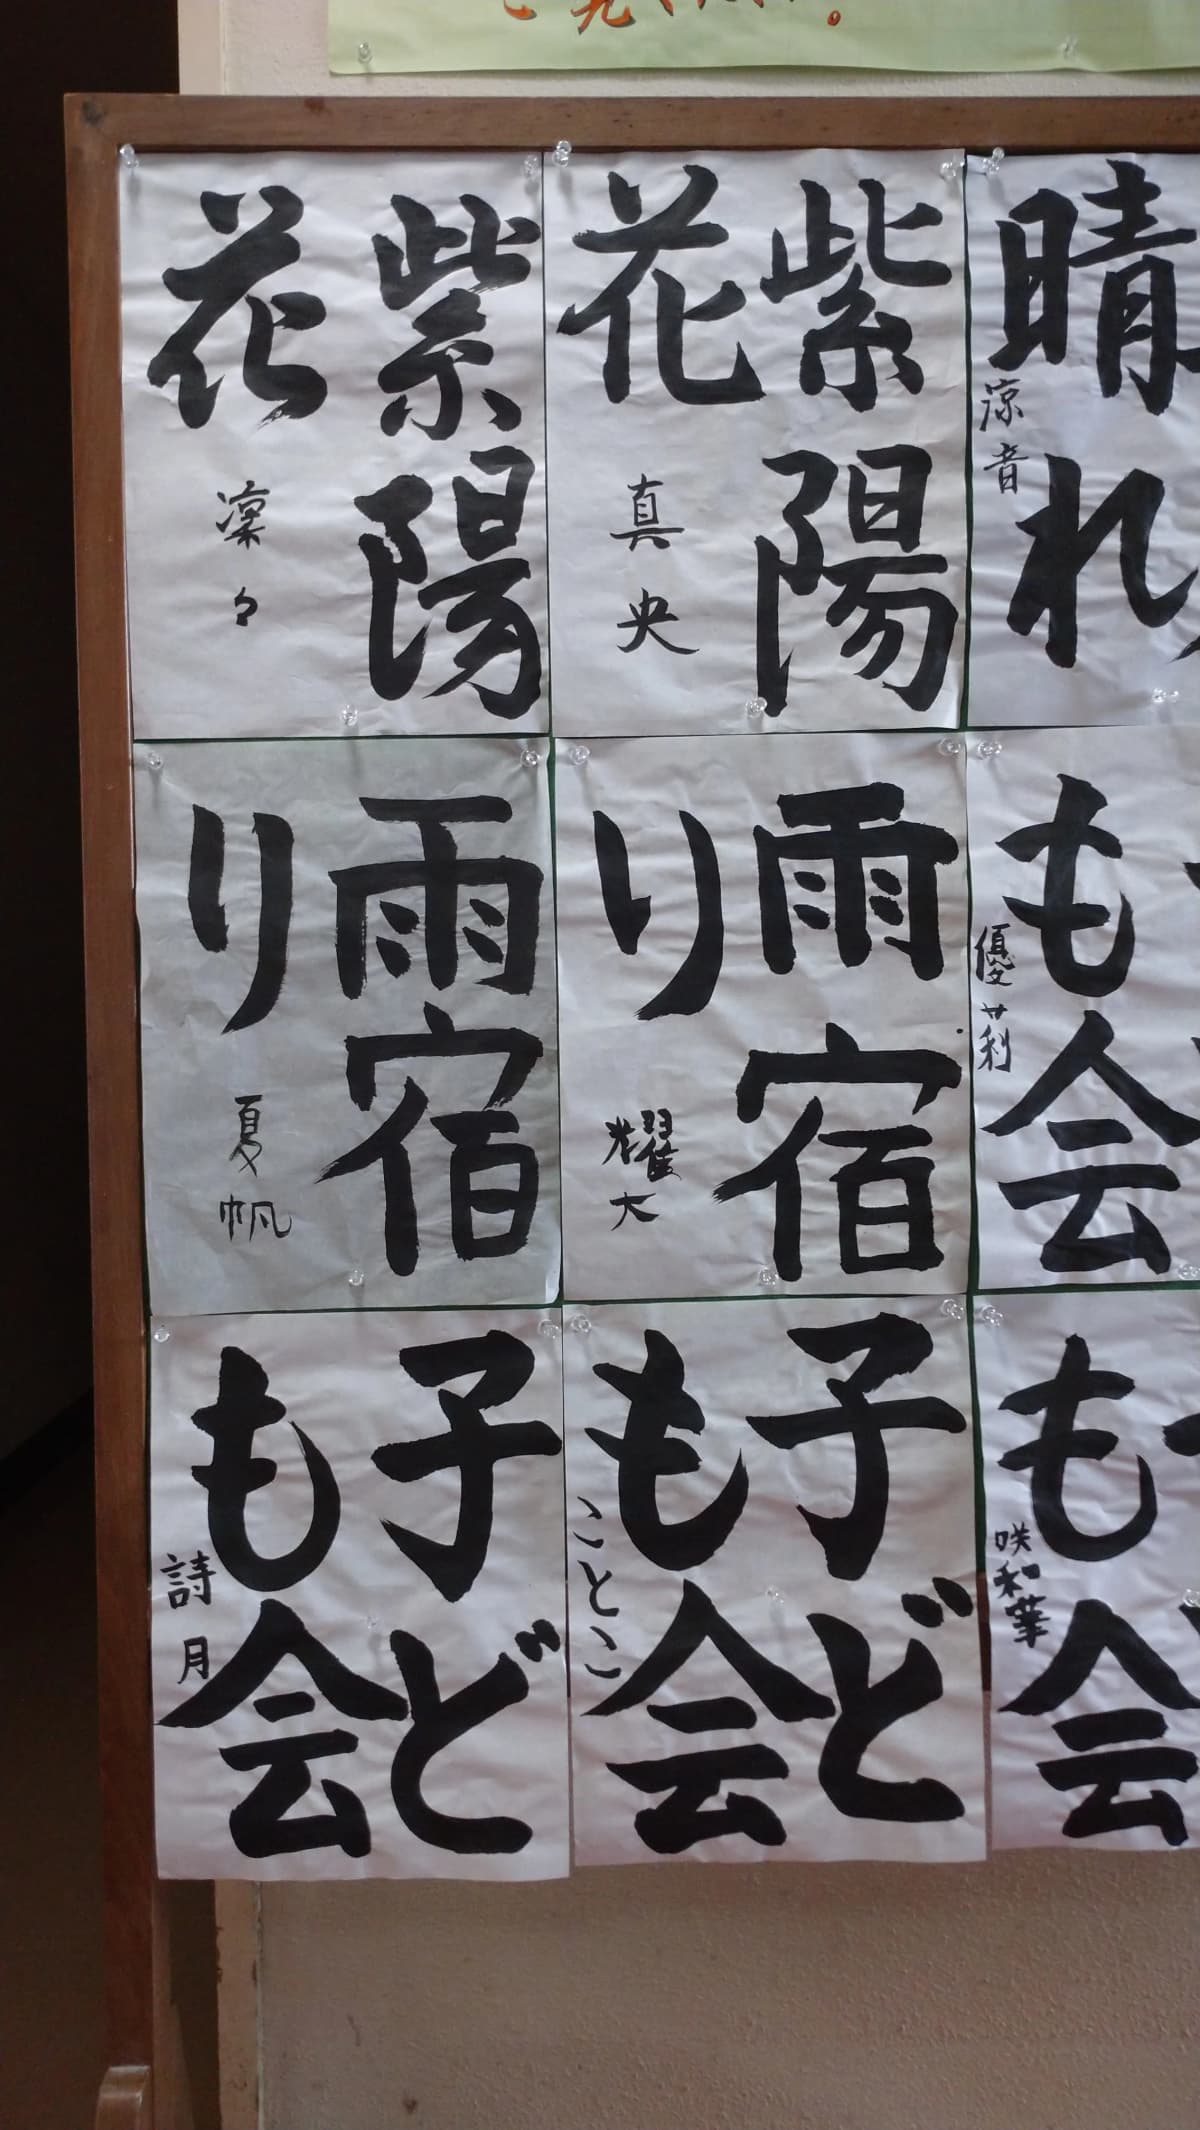 紫陽
花
凜々
紫陽
花
真央
晴れ
涼音
雨宿
り
夏帆
雨宿
り
耀大
も会
優莉
子ど
も会
詩月
子ど
も会
ことこ
も会
咲和華